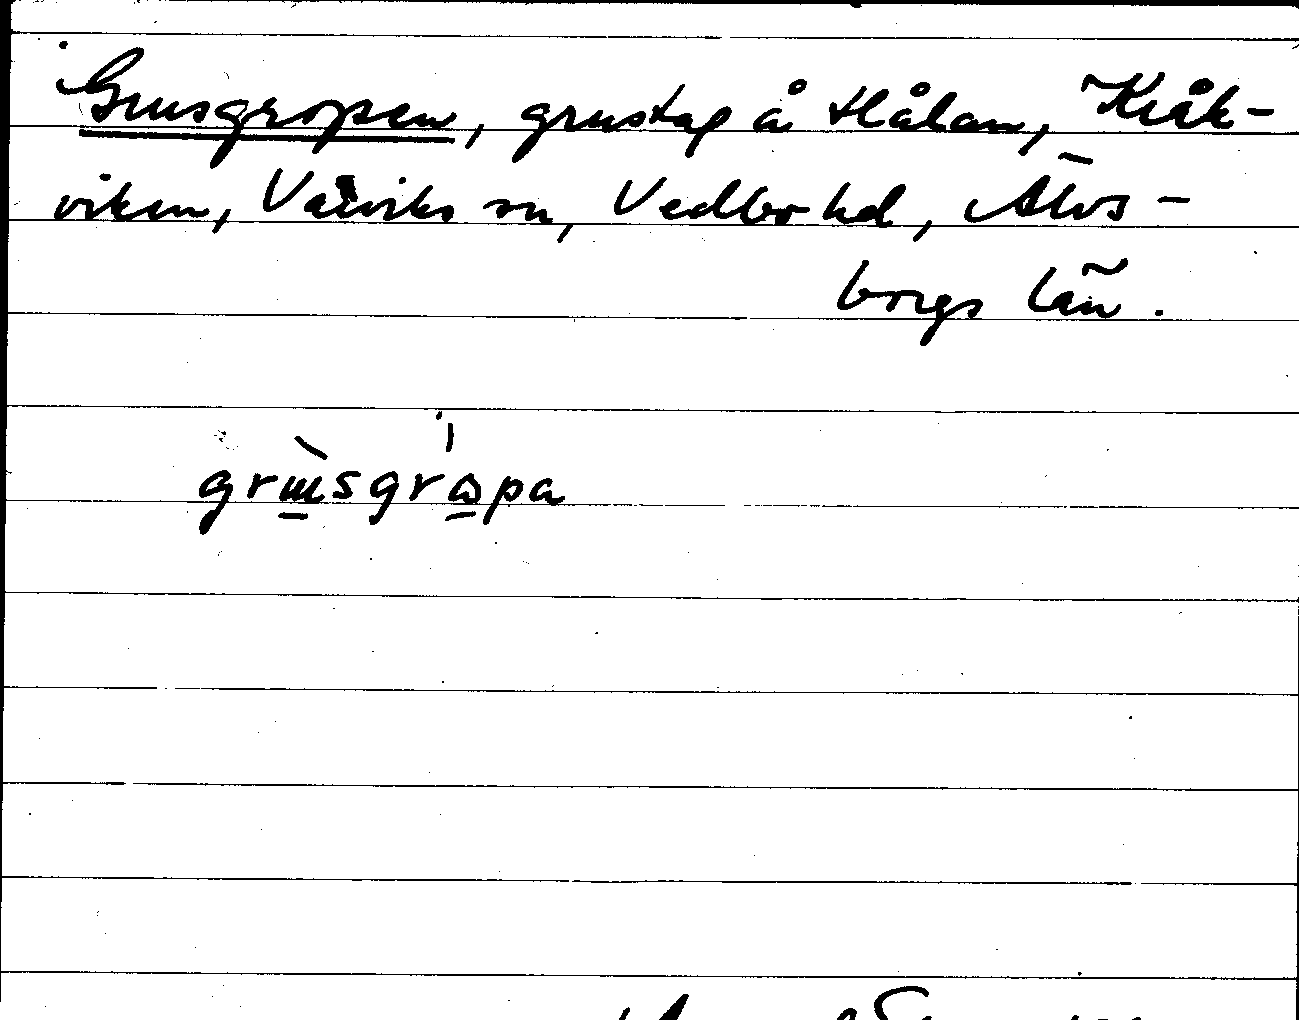 Grusgropen, grustag å Hålan, Kråk-
viken, Vårviks sn, Vedbo hd, Älvs-
borgs län.